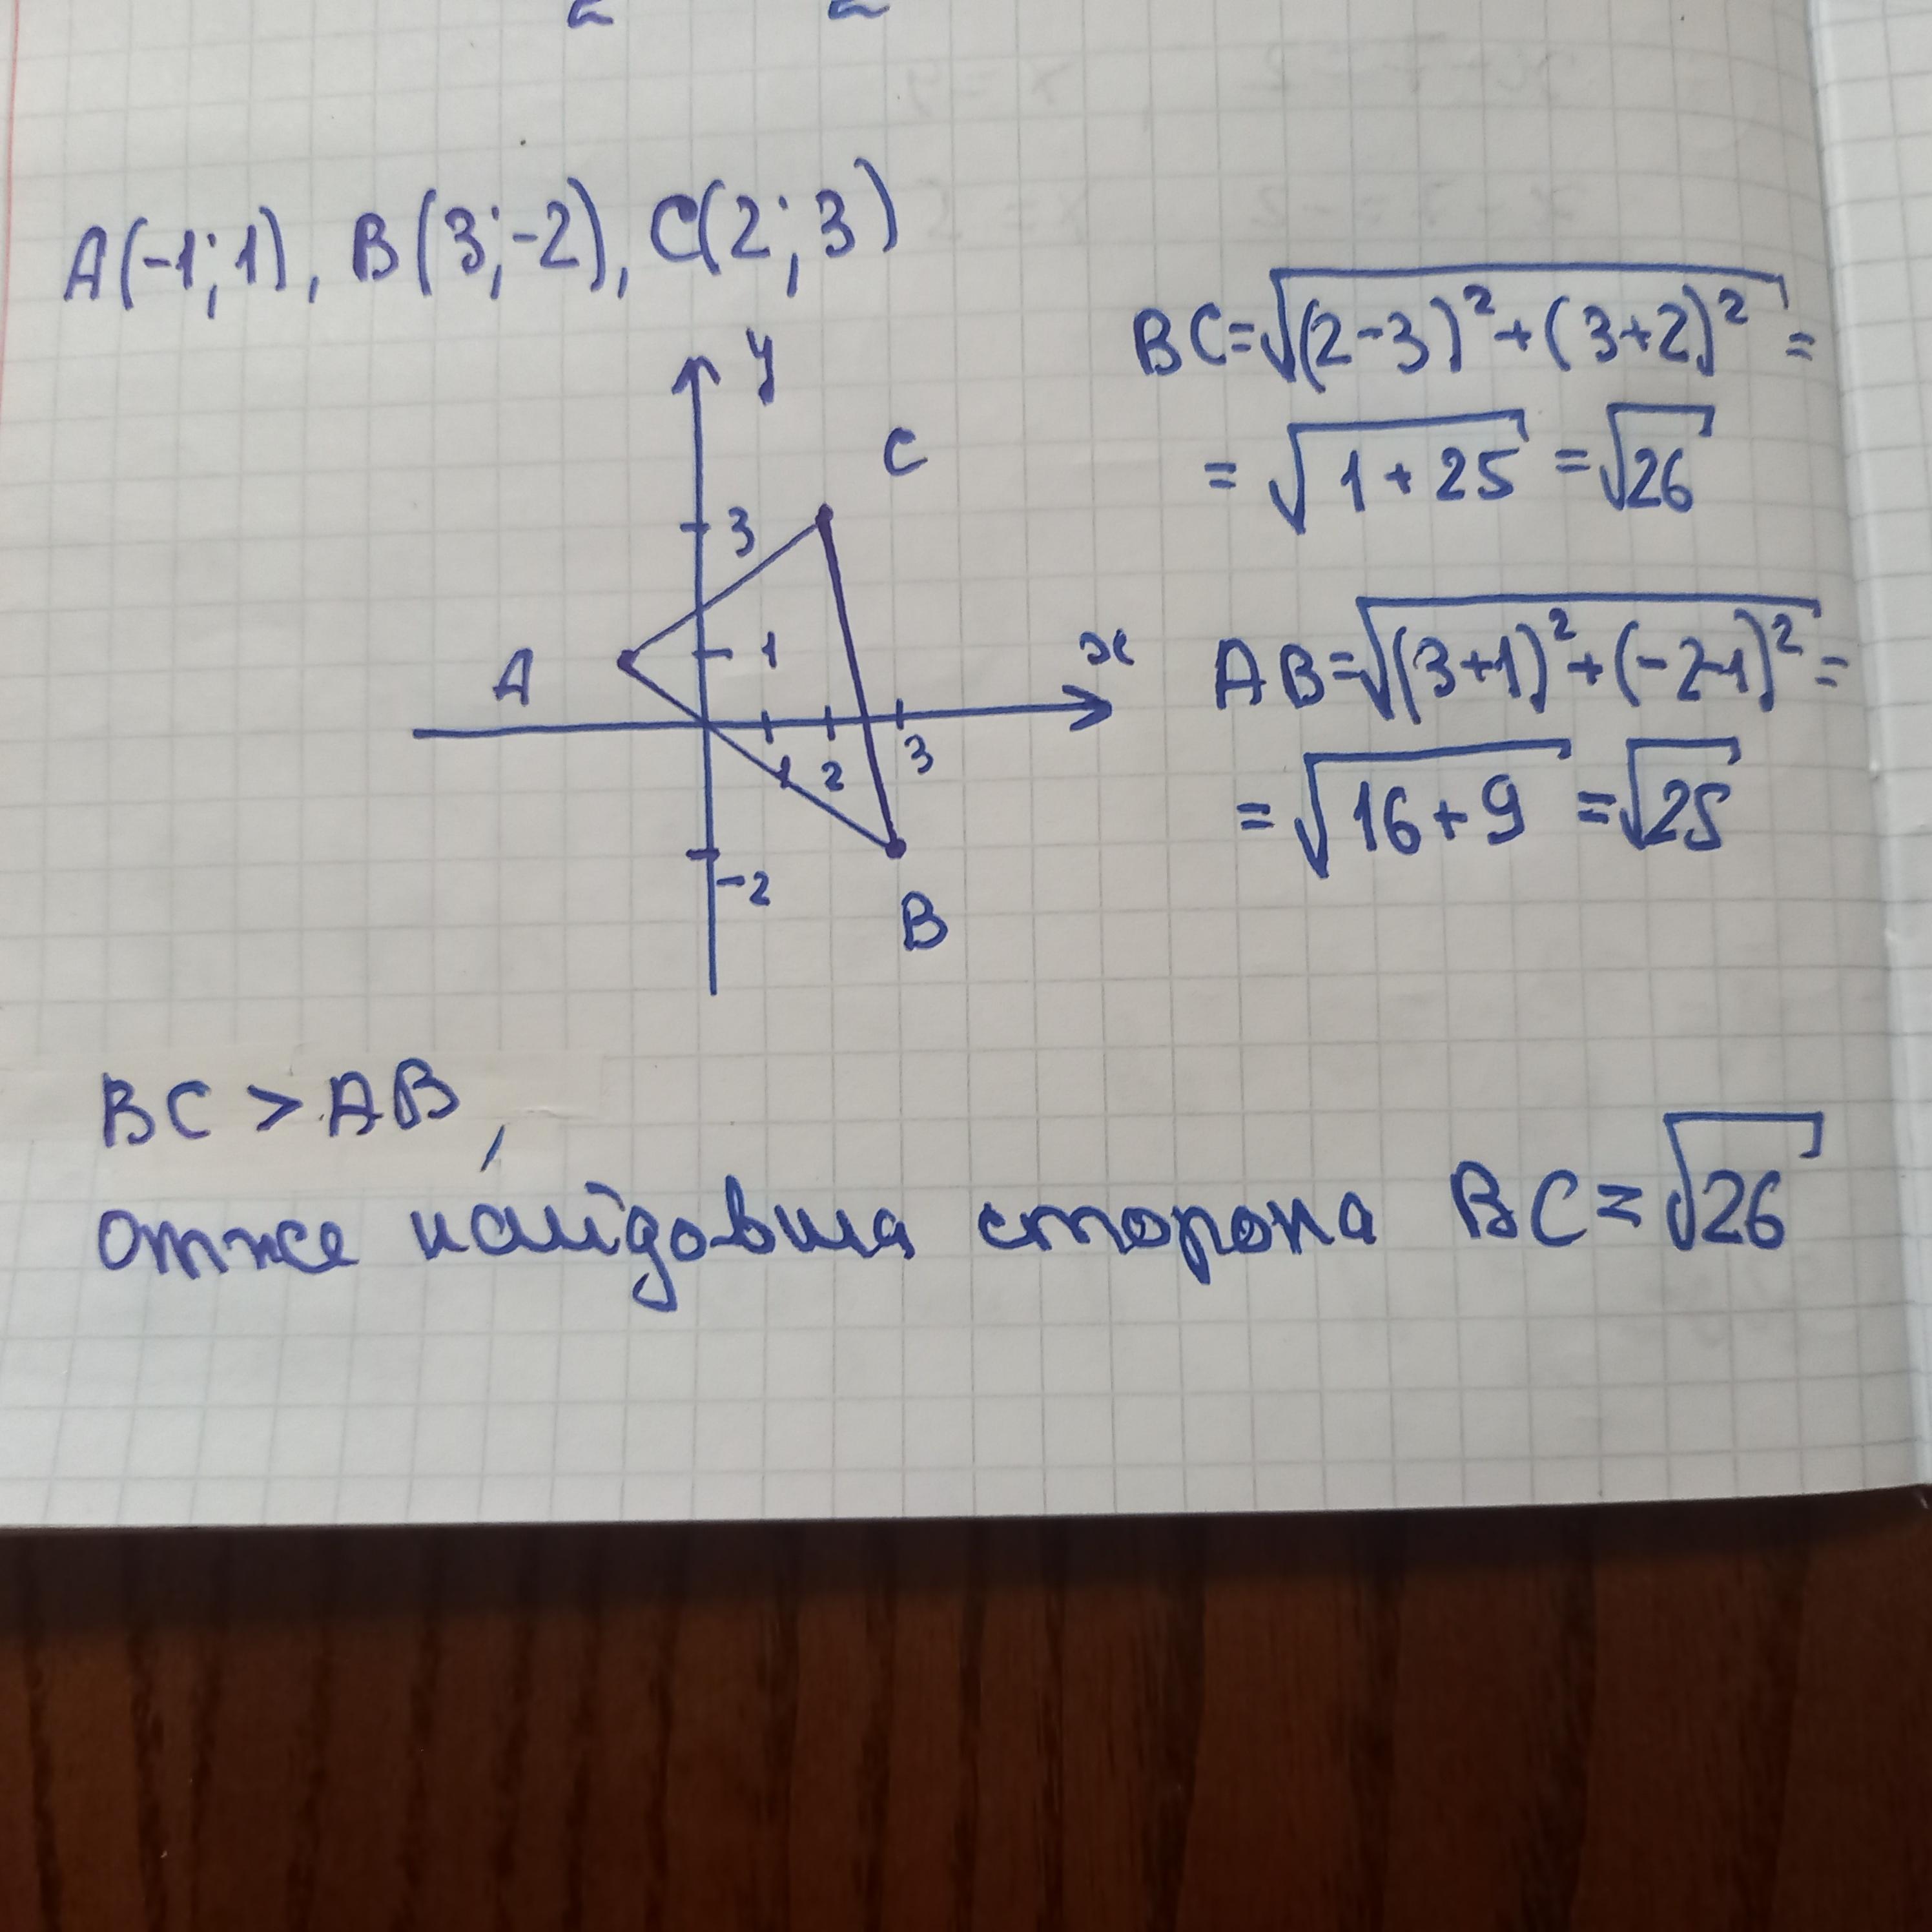 A(-1;1), B(3;-2), C(2;3)
y
C
3
A
1
x
1 2 3
-2
B
BC=√(2-3)²+(3+2)² =
= √1+25 = √26
AB=√(3+1)²+(-2-1)² =
= √16+9 = √25
BC > AB,
отже найдовша сторона BC = √26